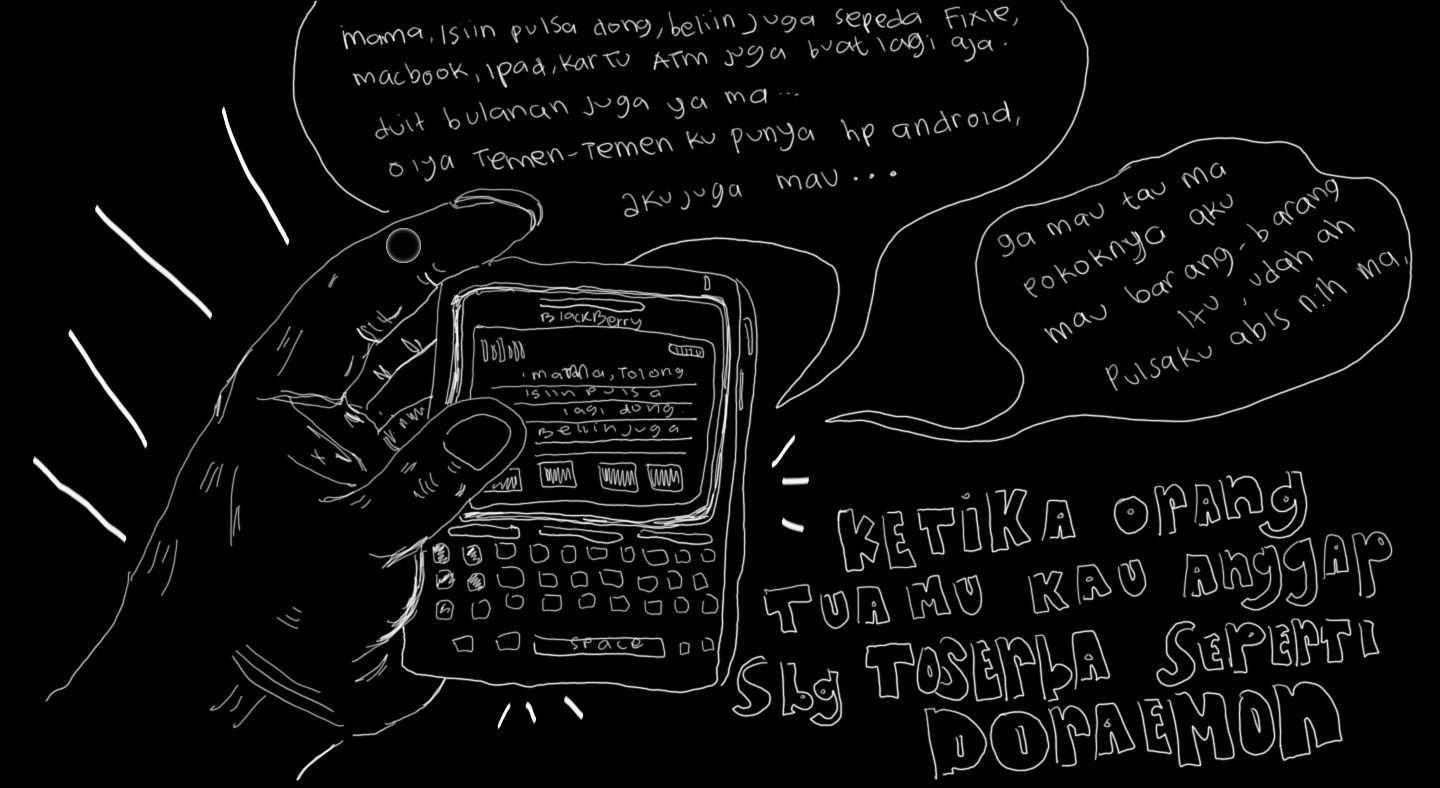 mama, isiin pulsa dong, beliin juga sepeda Fixie,
macbook, ipad, kartu ATM juga buat lagi aja.
duit bulanan juga ya ma...
oiya temen-temen ku punya hp android,
aku juga mau...
ga mau tau ma
pokoknya aku
mau barang-barang
itu, udah ah
pulsaku abis nih ma,
BlackBerry
mama, tolong
isiin pulsa
lagi dong
Beliin juga
space
KETIKA ORANG
TUAMU KAU ANGGAP
Sbg TOSERBA SEPERTI
DORAEMON